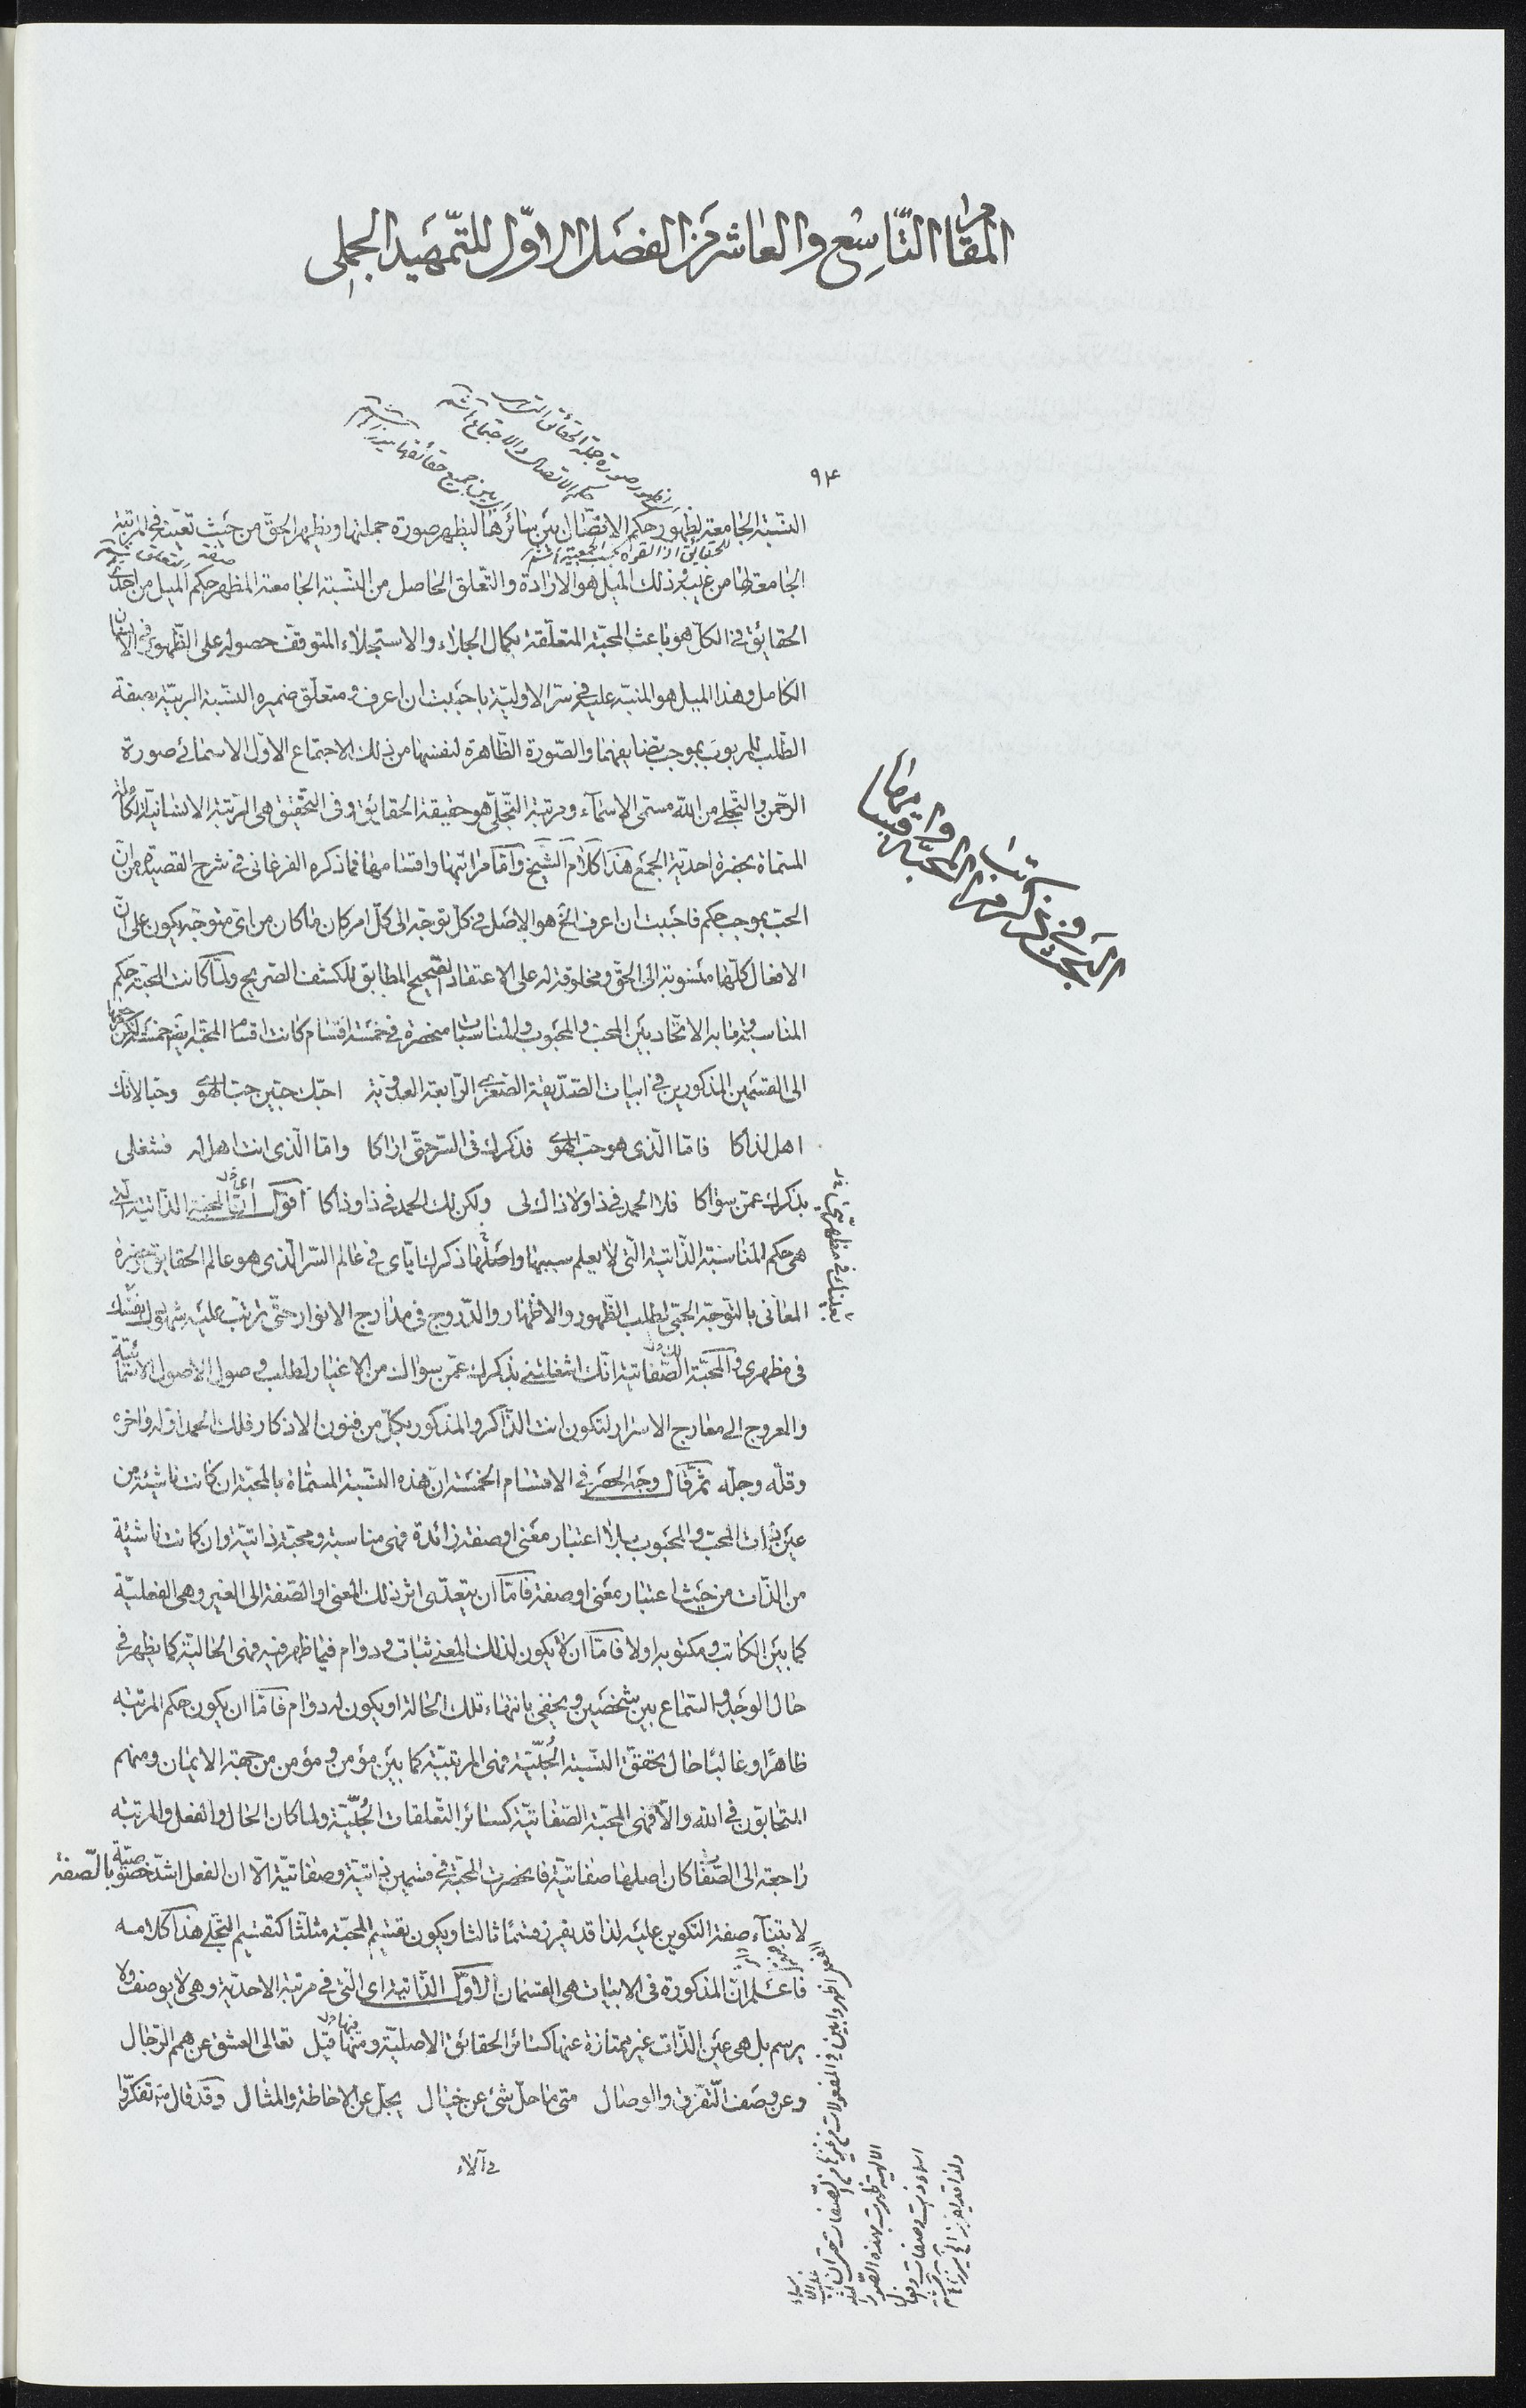 المقام التاسع والعاشر من الفصل الاول للتمهيد الجملى
٩٤
النسبة الجامعة لظهور حكم الاتصال بين سائرها ليظهر صورة جملتها ويظهر الحق من حيث تعينه فى المرتبة
الجامعة لها من غيبه وذلك الميل هو الارادة والتعلق الحاصل من النسبة الجامعة المظهر حكم الميل من احدى
الحقايق فى الكل هو باعث المحبة المتعلقة بكمال الجلاء والاستجلاء المتوقف حصوله على الظهور فى الانسان
الكامل وهذا الميل هو المنبه عليه فى سر الاولية باحببت ان اعرف ومتعلق ضميره النسبة الربية بصفة
الطلب للمربوب بموجب تضايفهما والصورة الظاهرة لنفسها من ذلك الاجتماع الاول الاسمائى صورة
الرحمن والتجلى من الله مسمى الاسماء ومرتبة التجلى هو حقيقة الحقايق وفى التحقيق هى المرتبة الانسانية الكمالية
المسماة بحضرة احدية الجمع هذا كلام الشيخ وأما مراتبها واقسامها فما ذكره الفرغانى فى شرح القصيدة من ان
الحب بموجب حكم فاحببت ان اعرف الخ هو الاصل فى كل توجه الى كل امر كان ما كان من اى متوجه يكون على ان
الافعال كلها منسوبة الى الحق ومخلوقة له على الاعتقاد الصحيح المطابق للكشف الصريح ولما كانت المحبة حكم
المناسبة وما به الاتحاد بين المحب والمحبوب والمناسبات منحصرة فى خمسة اقسام كانت اقسام المحبة ايضا خمسة لكن مرجعها
الى القسمين المذكورين فى ابيات الصديقة الصغرى الرابعة العدوية احبك حبين حب الهوى وحبا لانك
اهل لذاكا فاما الذى هو حب الهوى فذكرك فى السر حتى اراكا واما الذى انت اهل له فشغلى
بذكرك عمن سواكا فلا الحمد فى ذا ولا ذاك لى ولكن لك الحمد فى ذا وذاكا اقول اما المحبة الذاتية التى
هى حكم المناسبة الذاتية التى لا يعلم سببها واصلها ذكرك اياى فى عالم السر الذى هو عالم الحقايق وحضرة
المعانى بالتوجه الحبى لطلب الظهور والاظهار والدروج فى مدارج الانوار حتى ترتب عليه شهودك نفسك
فى مظهرى والمحبة الصفاتية انك اشغلتنى بذكرك عمن سواك من الاغيار لطلب وصول الاصول الاسمائية
والعروج الى معارج الاسرار لتكون انت الذاكر والمذكور بكل من فنون الاذكار فلك الحمد اوله واخره
وقله وجله ثم قال وجه الحصر فى الاقسام الخمسة ان هذه النسبة المسماة بالمحبة ان كانت ناشئة من
عين ذات المحب والمحبوب بلا اعتبار معنى او صفة زائدة فهى مناسبة ومحبة ذاتية وان كانت ناشئة
من الذات من حيث اعتبار معنى او صفة فاما ان يتعدى اثر ذلك المعنى او الصفة الى الغير وهى الفعلية
كما بين الكاتب ومكتوبه اولا فاما ان لا يكون لذلك المعنى ثبات ودوام فيما ظهر فيه فهى الحالية كما يظهر فى
حال الوجد والسماع بين شخصين ويخفى بانتهاء تلك الحالة او يكون له دوام فاما ان يكون حكم المرتبة
ظاهرا وغالبا حال تحقق النسبة الحبية فهى المرتبية كما بين مؤمن ومؤمن من جهة الايمان ومنهم
المتحابون فى الله والا فهى المحبة الصفاتية كسائر التعلقات الحبية ولما كان الحال والفعل والمرتبة
راجعة الى الصفات كان اصلها صفاتية فانحصرت المحبة فى قسمين ذاتية وصفاتية الا ان الفعل اشد خصوصية بالصفة
لابتناء صفة التكوين عليه لذا قد يفرز قسما ثالثا ويكون تقسيم المحبة مثلثا كتقسيم التجلى هذا كلامه
فاعلم ان المذكورة فى الابيات هى القسمان الاول الذاتية اى التى فى مرتبة الاحدية وهى لا يوصف ولا
يرسم بل هى عين الذات غير ممتازة عنها كسائر الحقائق الاصلية ومنها قيل تعالى العشق عن همم الرجال
وعن وصف التفرق والوصال متى ما حل شئ عن خيال يجل عن الاحاطة والمثال وقد قال تفكروا
فى آلاء
البحث فى ذكر مراتب المحبة واقسامها